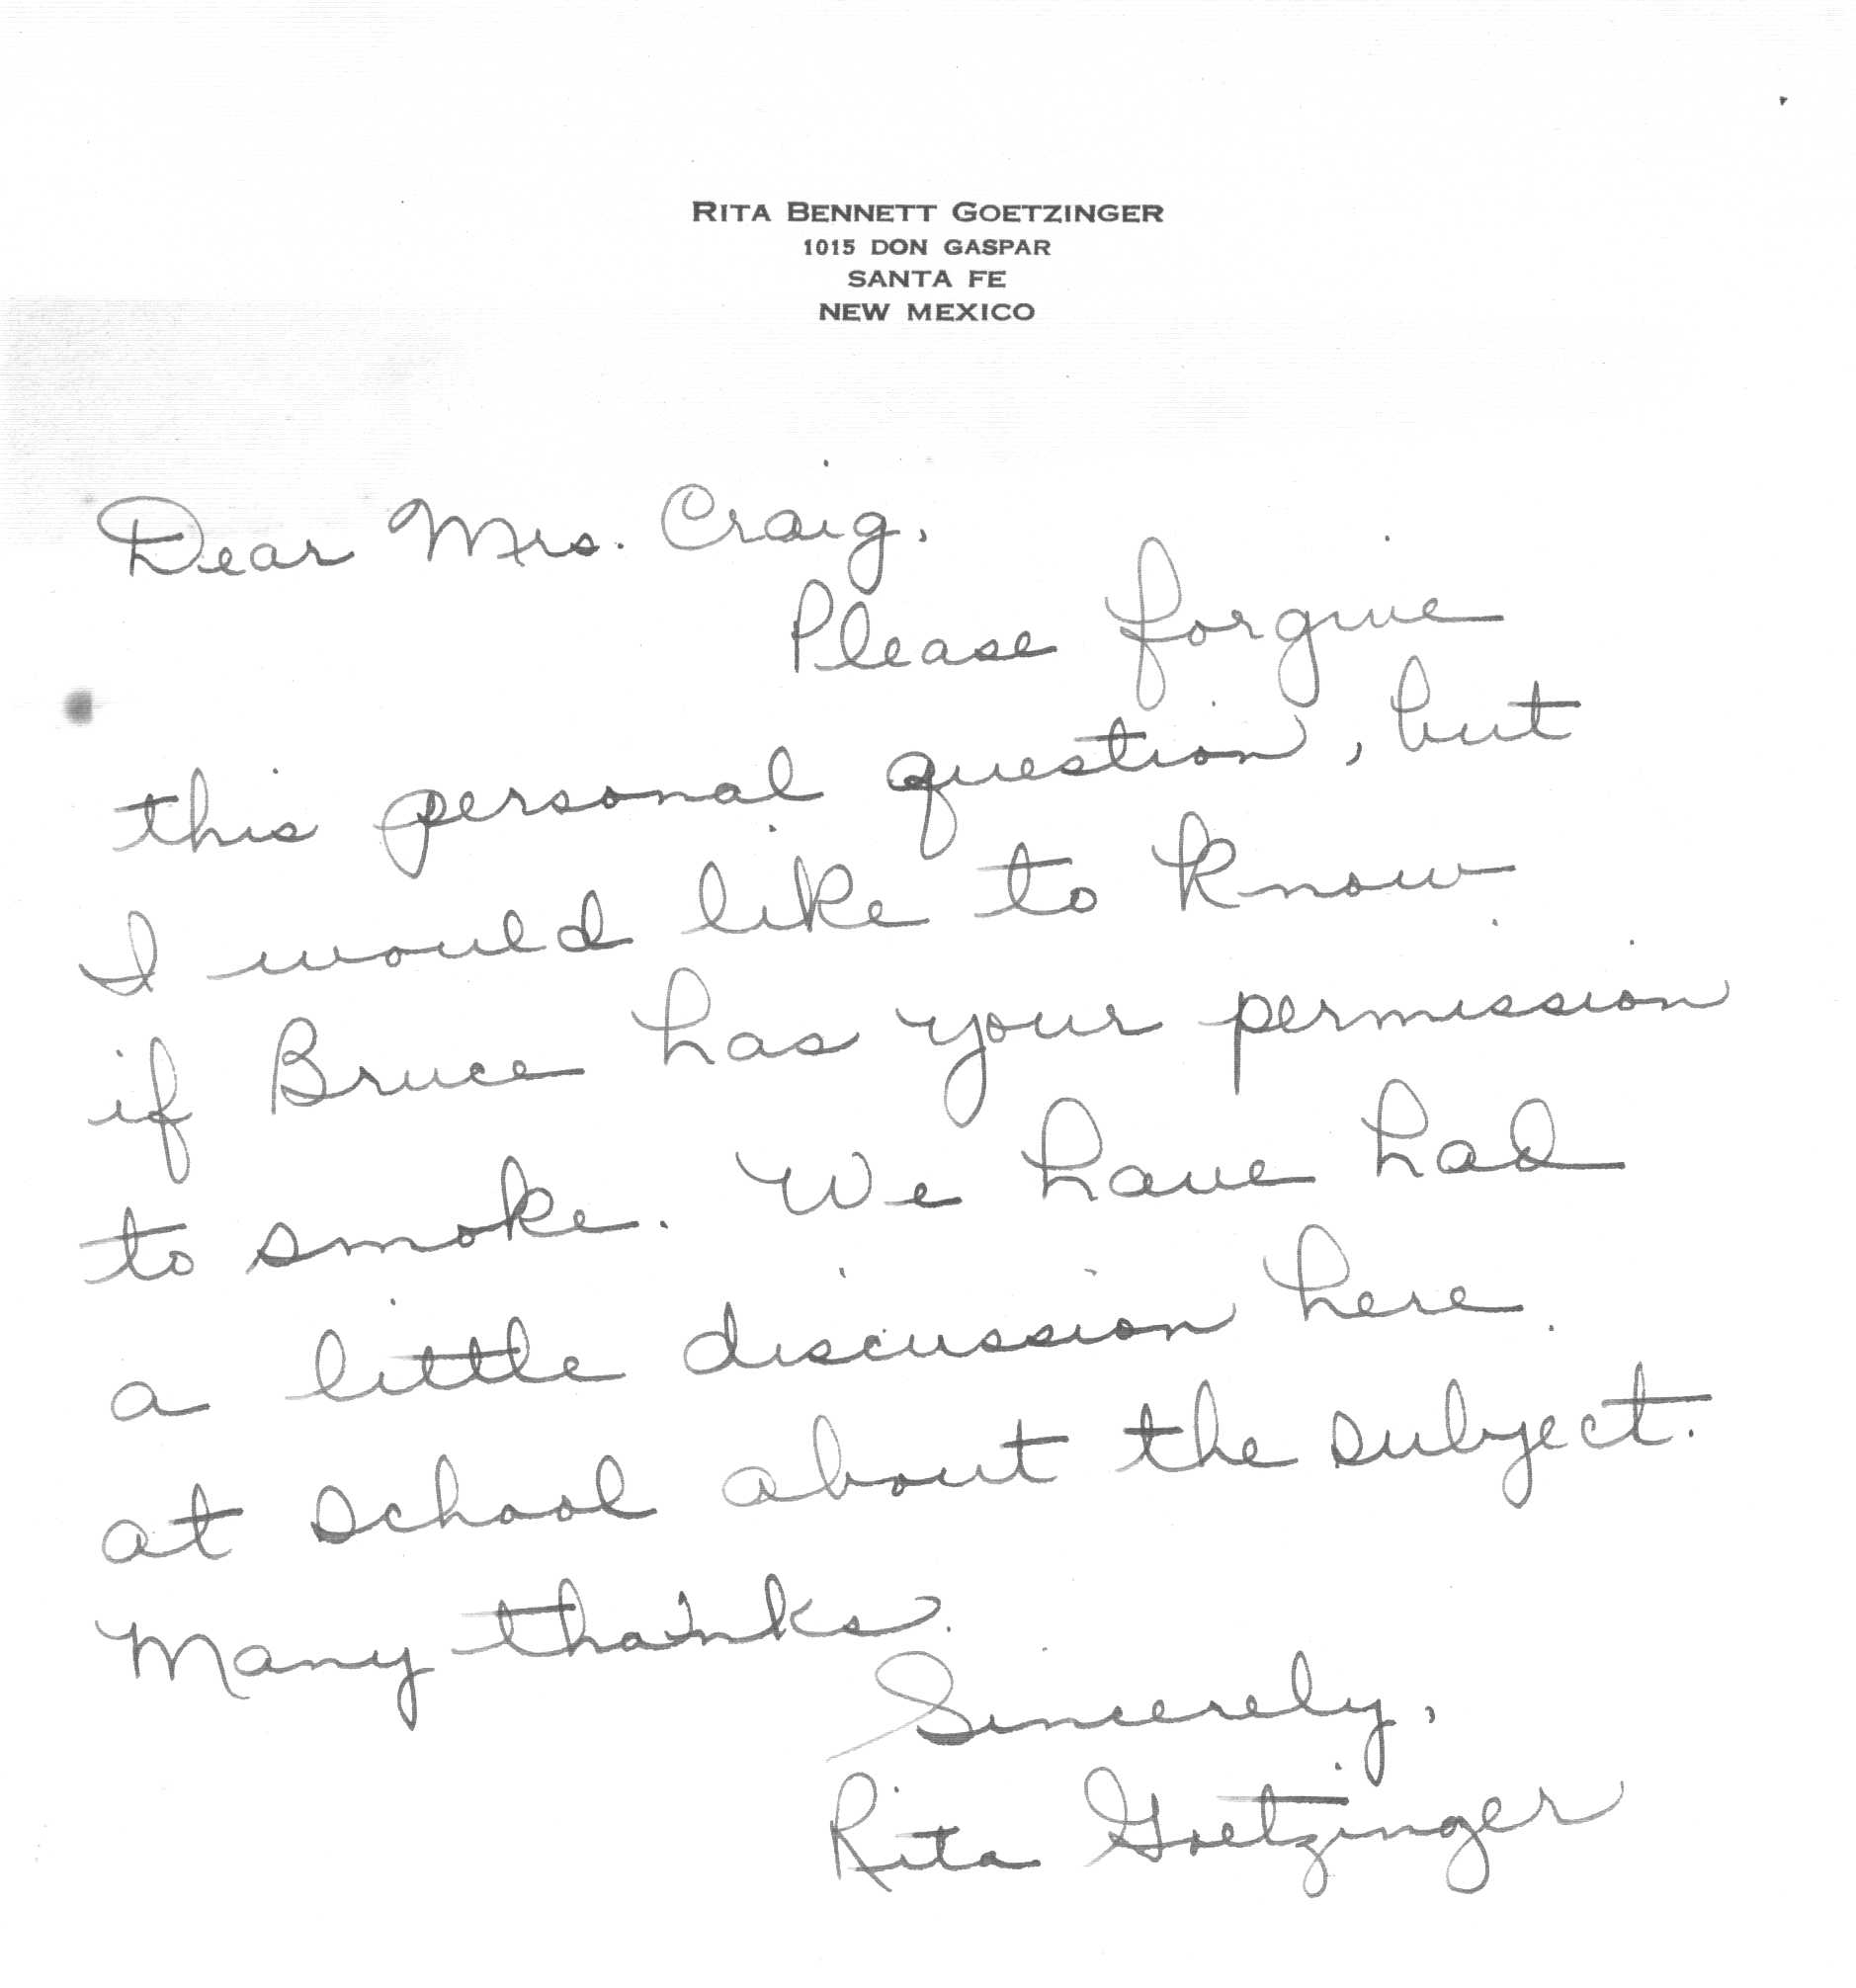 RITA BENNETT GOETZINGER
1015 DON GASPAR
SANTA FE
NEW MEXICO
Dear Mrs. Craig,
Please forgive
this personal question, but
I would like to know
if Bruce has your permission
to smoke. We have had
a little discussion here
at school about the subject.
Many thanks.
Sincerely,
Rita Goetzinger